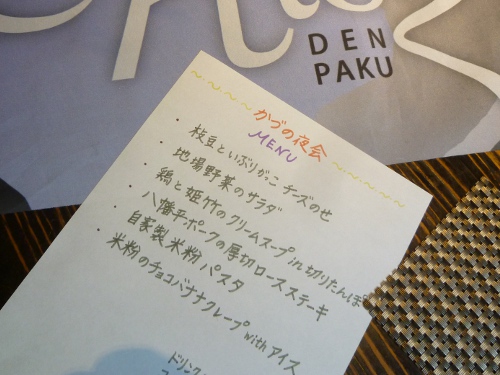 DEN
PAKU
かづの夜会
MENU
・枝豆といぶりがっこ チーズのせ
・地場野菜のサラダ
・鶏と姫竹のクリームスープ in 切りたんぽ
・八幡平ポークの厚切ロースステーキ
・自家製米粉パスタ
・米粉のチョコバナナクレープ with アイス
ドリンク